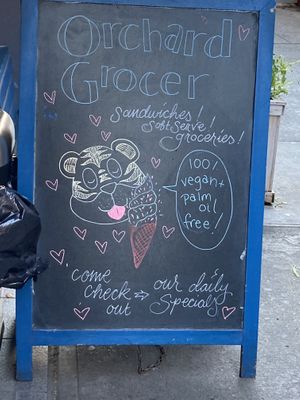 Orchard
Grocer
sandwiches!
soft serve!
groceries!
100%
vegan +
palm
oil
free!
come
check
out
our daily
specials